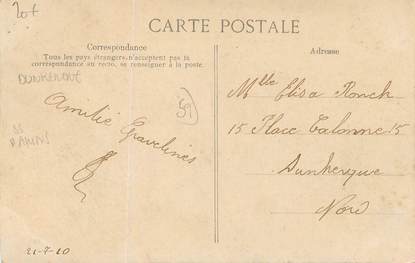 20f
CARTE POSTALE
Correspondance
Tous les pays étrangers n'acceptent pas la
correspondance au recto, se renseigner à la poste.
DUNKERQUE
Amélie Gravelines
Adresse
Mlle Elisa Ronck
15 Place Calonne 15
Dunkerque
Nord
21-7-10